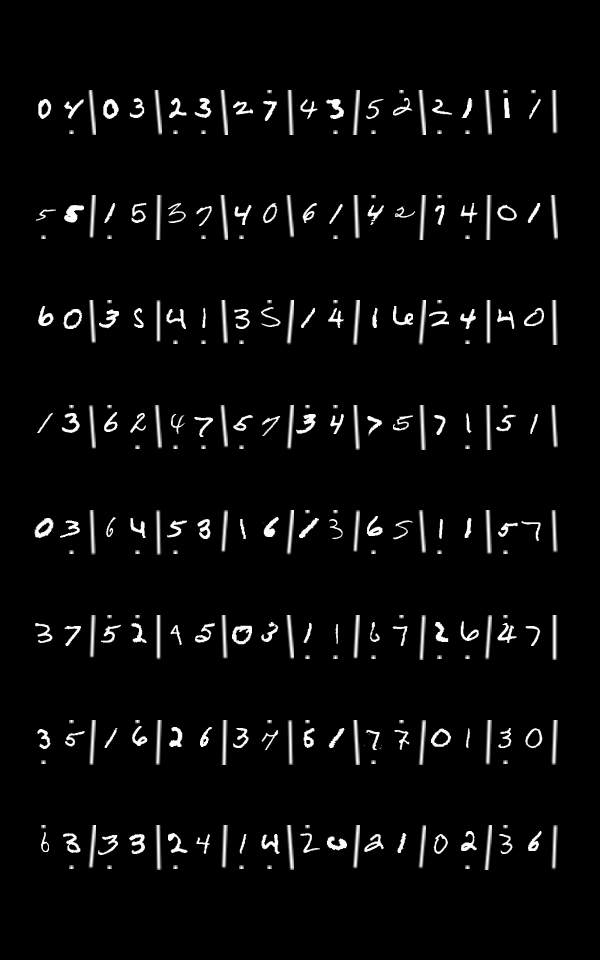 0 4 | 0 3 | 2 3 | 2 7 | 4 3 | 5 2 | 2 1 | 1 1 |
5 5 | 1 5 | 3 7 | 4 0 | 6 1 | 4 2 | 7 4 | 0 1 |
6 0 | 3 5 | 4 1 | 3 5 | 1 4 | 1 6 | 2 4 | 4 0 |
1 3 | 6 2 | 4 7 | 5 7 | 3 4 | 7 5 | 7 1 | 5 1 |
0 3 | 6 4 | 5 3 | 1 6 | 1 3 | 6 5 | 1 1 | 5 7 |
3 7 | 5 2 | 4 5 | 0 3 | 1 1 | 6 7 | 2 6 | 4 7 |
3 5 | 1 6 | 2 6 | 3 7 | 6 1 | 7 7 | 0 1 | 3 0 |
6 3 | 3 3 | 2 4 | 1 4 | 2 6 | 2 1 | 0 2 | 3 6 |